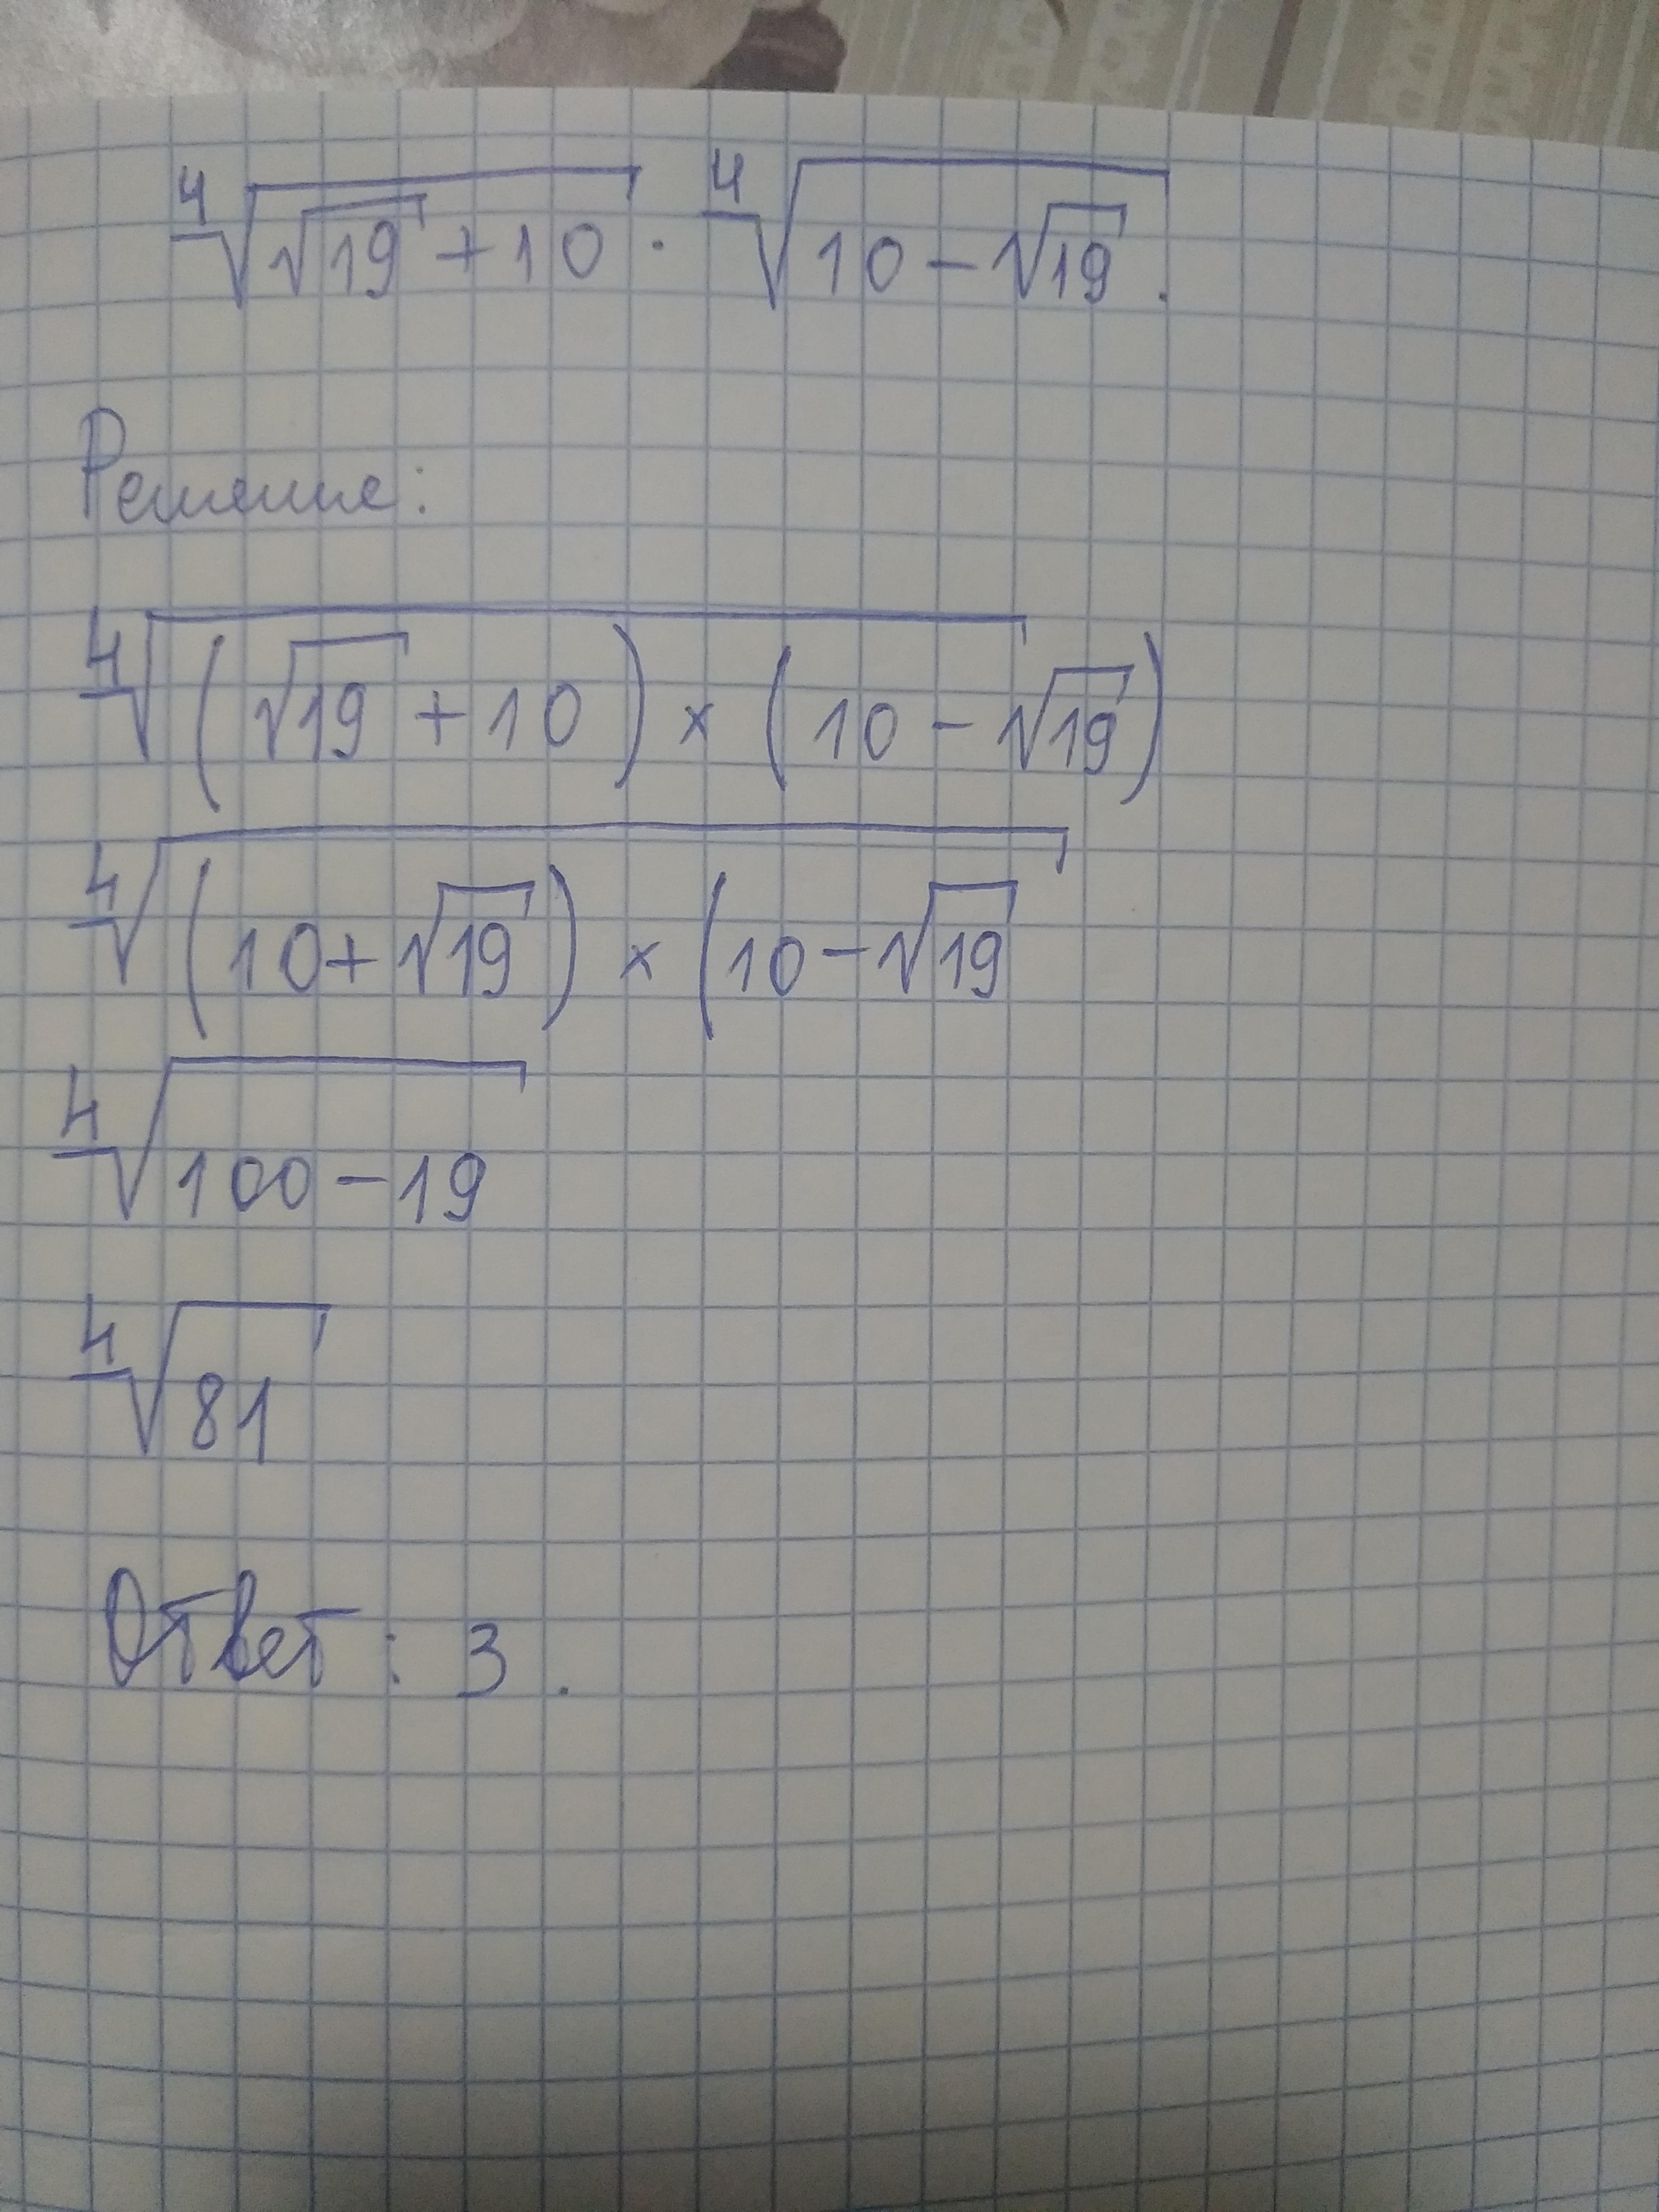 ⁴√(√19 + 10) · ⁴√(10 - √19).
Решение:
⁴√((√19 + 10) × (10 - √19))
⁴√((10 + √19) × (10 - √19
⁴√(100 - 19)
⁴√81
Ответ: 3.